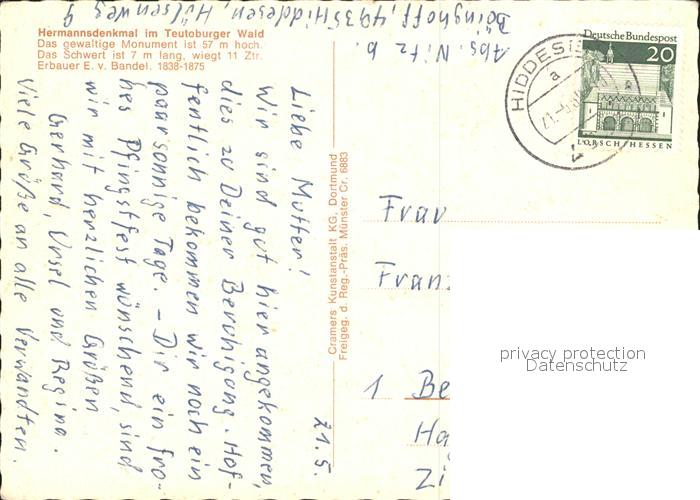 Hermannsdenkmal im Teutoburger Wald
Das gewaltige Monument ist 57 m hoch.
Das Schwert ist 7 m lang, wiegt 11 Ztr.
Erbauer E. v. Bandel. 1838-1875
Abs. Nitz b.
Böinghoff, 4935 Hiddesen, Hülsenweg 9
HIDDESE
a
21.-5.
Deutsche Bundespost
20
LORSCH/HESSEN
21.5.
Liebe Mutter!
Wir sind gut hier angekommen,
dies zu Deiner Beruhigung. Hof-
fentlich bekommen wir noch ein
paar sonnige Tage. – Dir ein fro-
hes Pfingstfest wünschend, sind
wir mit herzlichen Grüßen
Gerhard, Ursel und Regina.
Viele Grüße an alle Verwandten.
Cramers Kunstanstalt KG, Dortmund
Freigeg. d. Reg.-Präs. Münster Cr. 6883
Frau
Franz
1 Be
Ha
Zi
privacy protection
Datenschutz